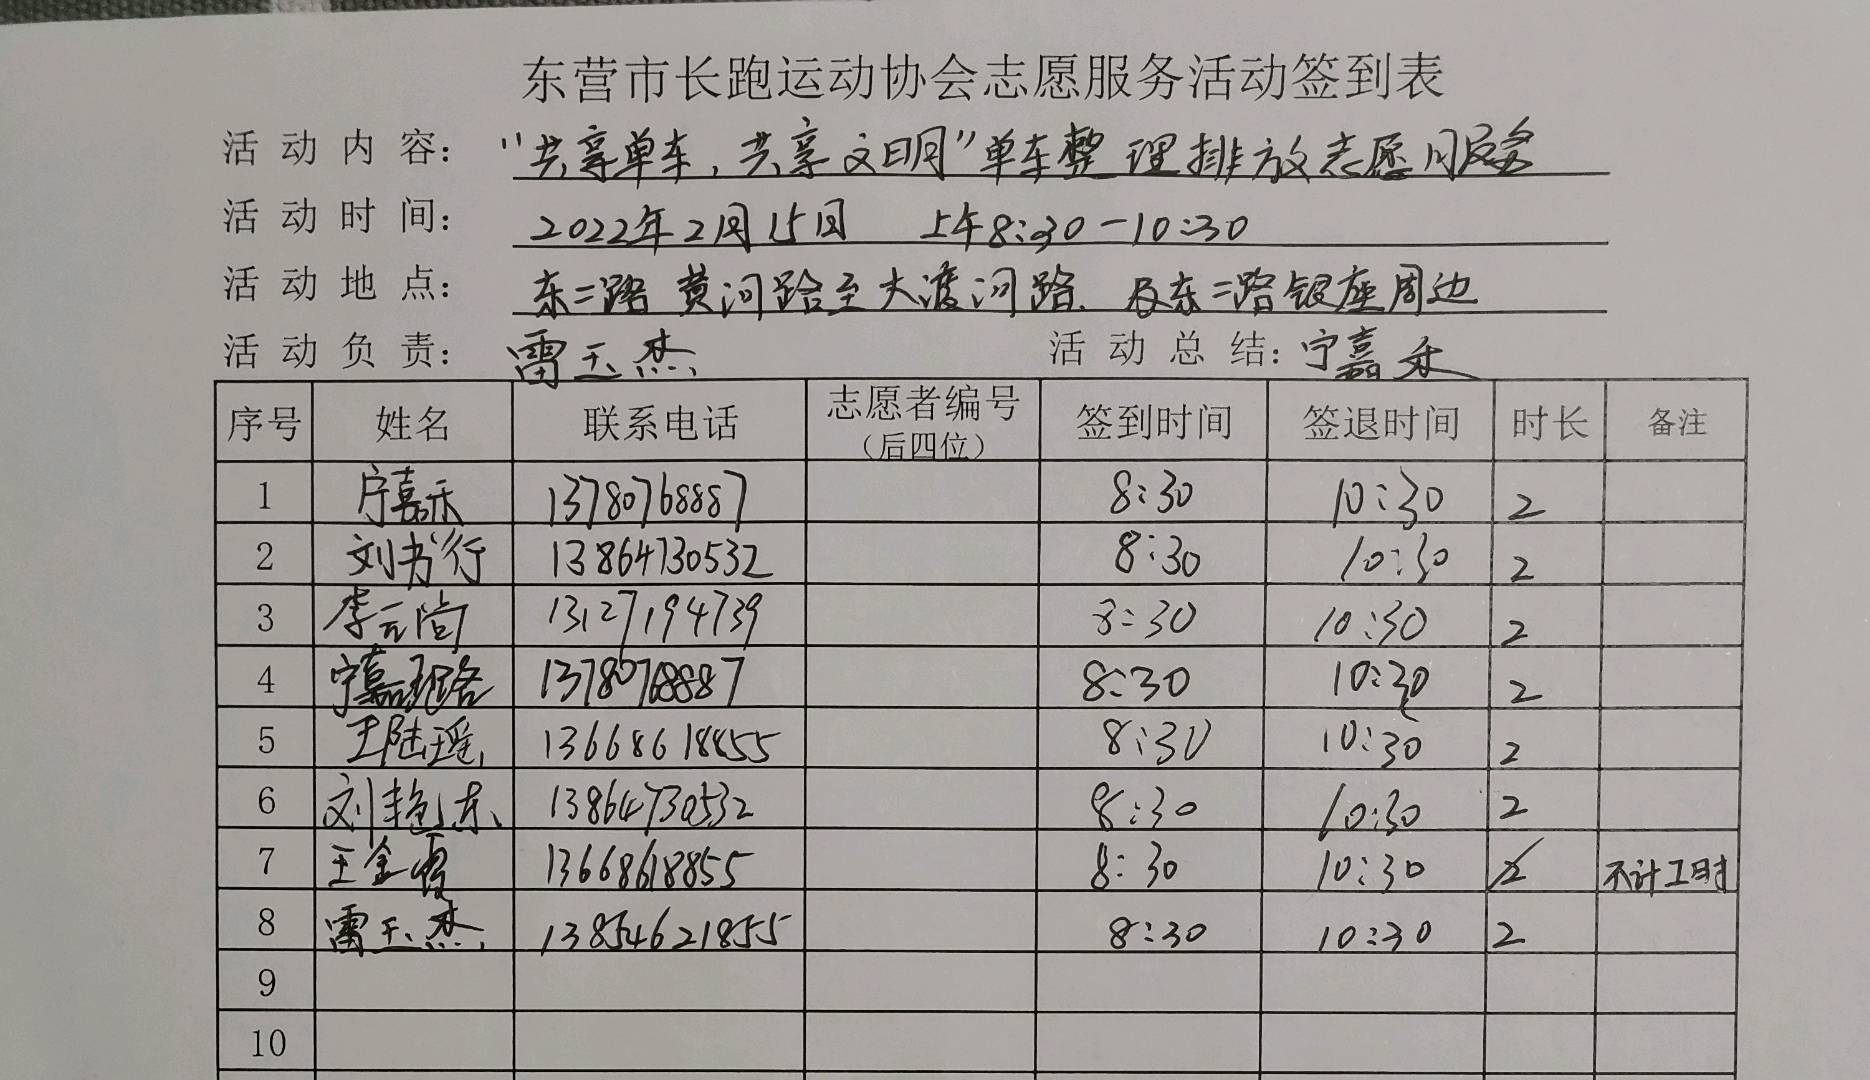 东营市长跑运动协会志愿服务活动签到表
活动内容：“共享单车，共享文明”单车整理排放志愿服务
活动时间：2022年2月15日 上午8:30-10:30
活动地点：东二路黄河路至大渡河路、及东二路银座周边
活动负责：雷玉杰 活动总结：宁嘉禾
序号 姓名 联系电话 志愿者编号（后四位） 签到时间 签退时间 时长 备注
1 宁嘉禾 13780768887 8:30 10:30 2
2 刘书行 13864730532 8:30 10:30 2
3 李元尚 13127194739 8:30 10:30 2
4 宁嘉珞 13780768887 8:30 10:30 2
5 王陆瑶 13668618855 8:30 10:30 2
6 刘艳东 13864730532 8:30 10:30 2
7 王金霞 13668618855 8:30 10:30 2 不计工时
8 雷玉杰 13854621855 8:30 10:30 2
9
10